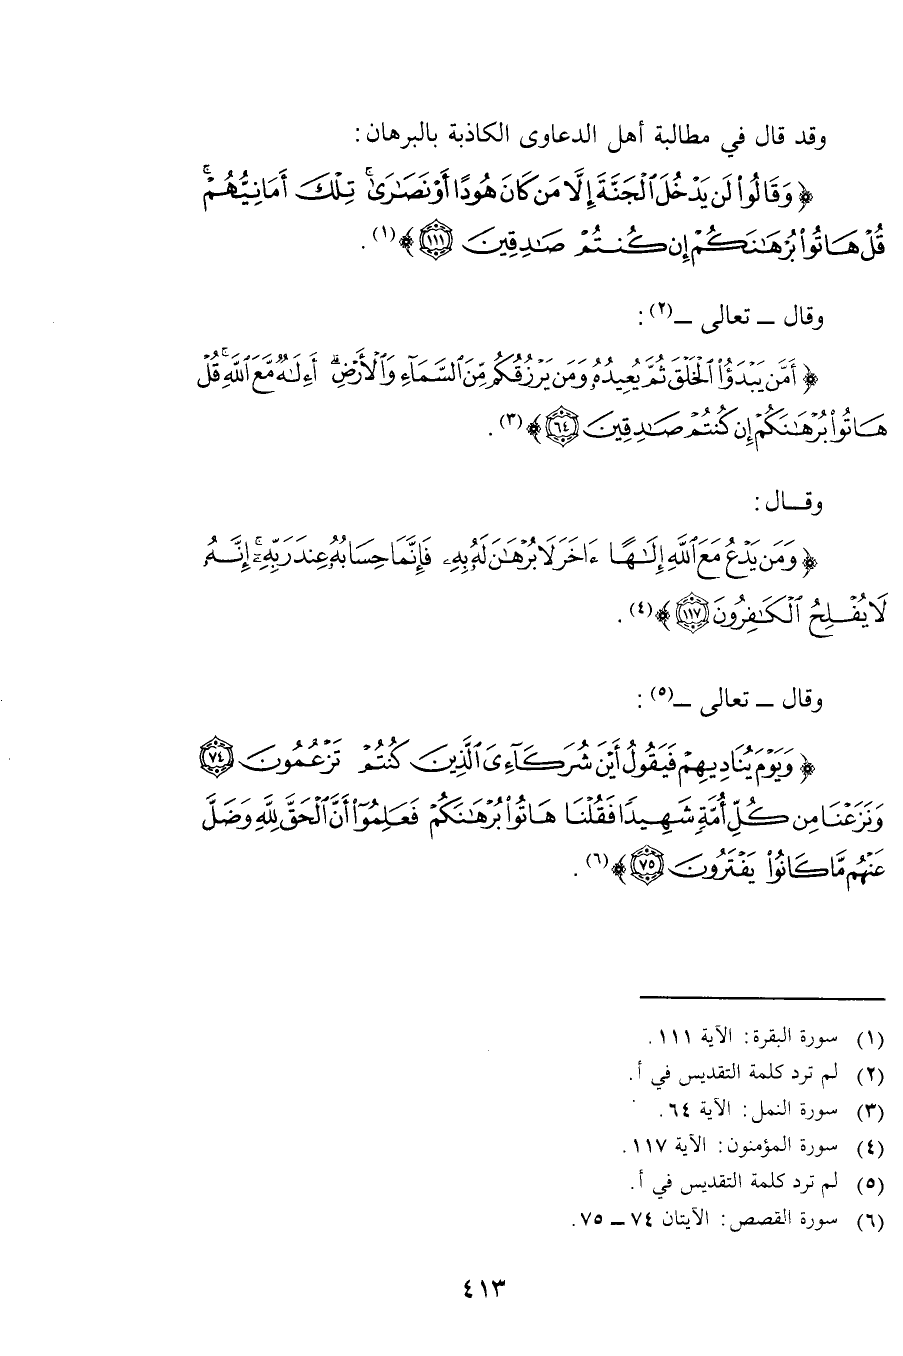 وقد قال في مطالبة أهل الدعاوى الكاذبة بالبرهان:
﴿ وَقَالُوا۟ لَن يَدْخُلَ ٱلْجَنَّةَ إِلَّا مَن كَانَ هُودًا أَوْ نَصَـٰرَىٰ ۗ تِلْكَ أَمَانِيُّهُمْ ۗ
قُلْ هَاتُوا۟ بُرْهَـٰنَكُمْ إِن كُنتُمْ صَـٰدِقِينَ ﴿١١١﴾ ﴾(١).
وقال ـ تعالى ـ(٢):
﴿ أَمَّن يَبْدَؤُا۟ ٱلْخَلْقَ ثُمَّ يُعِيدُهُۥ وَمَن يَرْزُقُكُم مِّنَ ٱلسَّمَآءِ وَٱلْأَرْضِ ۗ أَءِلَـٰهٌ مَّعَ ٱللَّهِ ۚ قُلْ
هَاتُوا۟ بُرْهَـٰنَكُمْ إِن كُنتُمْ صَـٰدِقِينَ ﴿٦٤﴾ ﴾(٣).
وقـال:
﴿ وَمَن يَدْعُ مَعَ ٱللَّهِ إِلَـٰهًا ءَاخَرَ لَا بُرْهَـٰنَ لَهُۥ بِهِۦ فَإِنَّمَا حِسَابُهُۥ عِندَ رَبِّهِۦٓ ۚ إِنَّهُۥ
لَا يُفْلِحُ ٱلْكَـٰفِرُونَ ﴿١١٧﴾ ﴾(٤).
وقال ـ تعالى ـ(٥):
﴿ وَيَوْمَ يُنَادِيهِمْ فَيَقُولُ أَيْنَ شُرَكَآءِىَ ٱلَّذِينَ كُنتُمْ تَزْعُمُونَ ﴿٧٤﴾
وَنَزَعْنَا مِن كُلِّ أُمَّةٍ شَهِيدًا فَقُلْنَا هَاتُوا۟ بُرْهَـٰنَكُمْ فَعَلِمُوٓا۟ أَنَّ ٱلْحَقَّ لِلَّهِ وَضَلَّ
عَنْهُم مَّا كَانُوا۟ يَفْتَرُونَ ﴿٧٥﴾ ﴾(٦).
(١) سورة البقرة: الآية ١١١.
(٢) لم ترد كلمة التقديس في أ.
(٣) سورة النمل: الآية ٦٤.
(٤) سورة المؤمنون: الآية ١١٧.
(٥) لم ترد كلمة التقديس في أ.
(٦) سورة القصص: الآيتان ٧٤ ـ ٧٥.
٤١٣